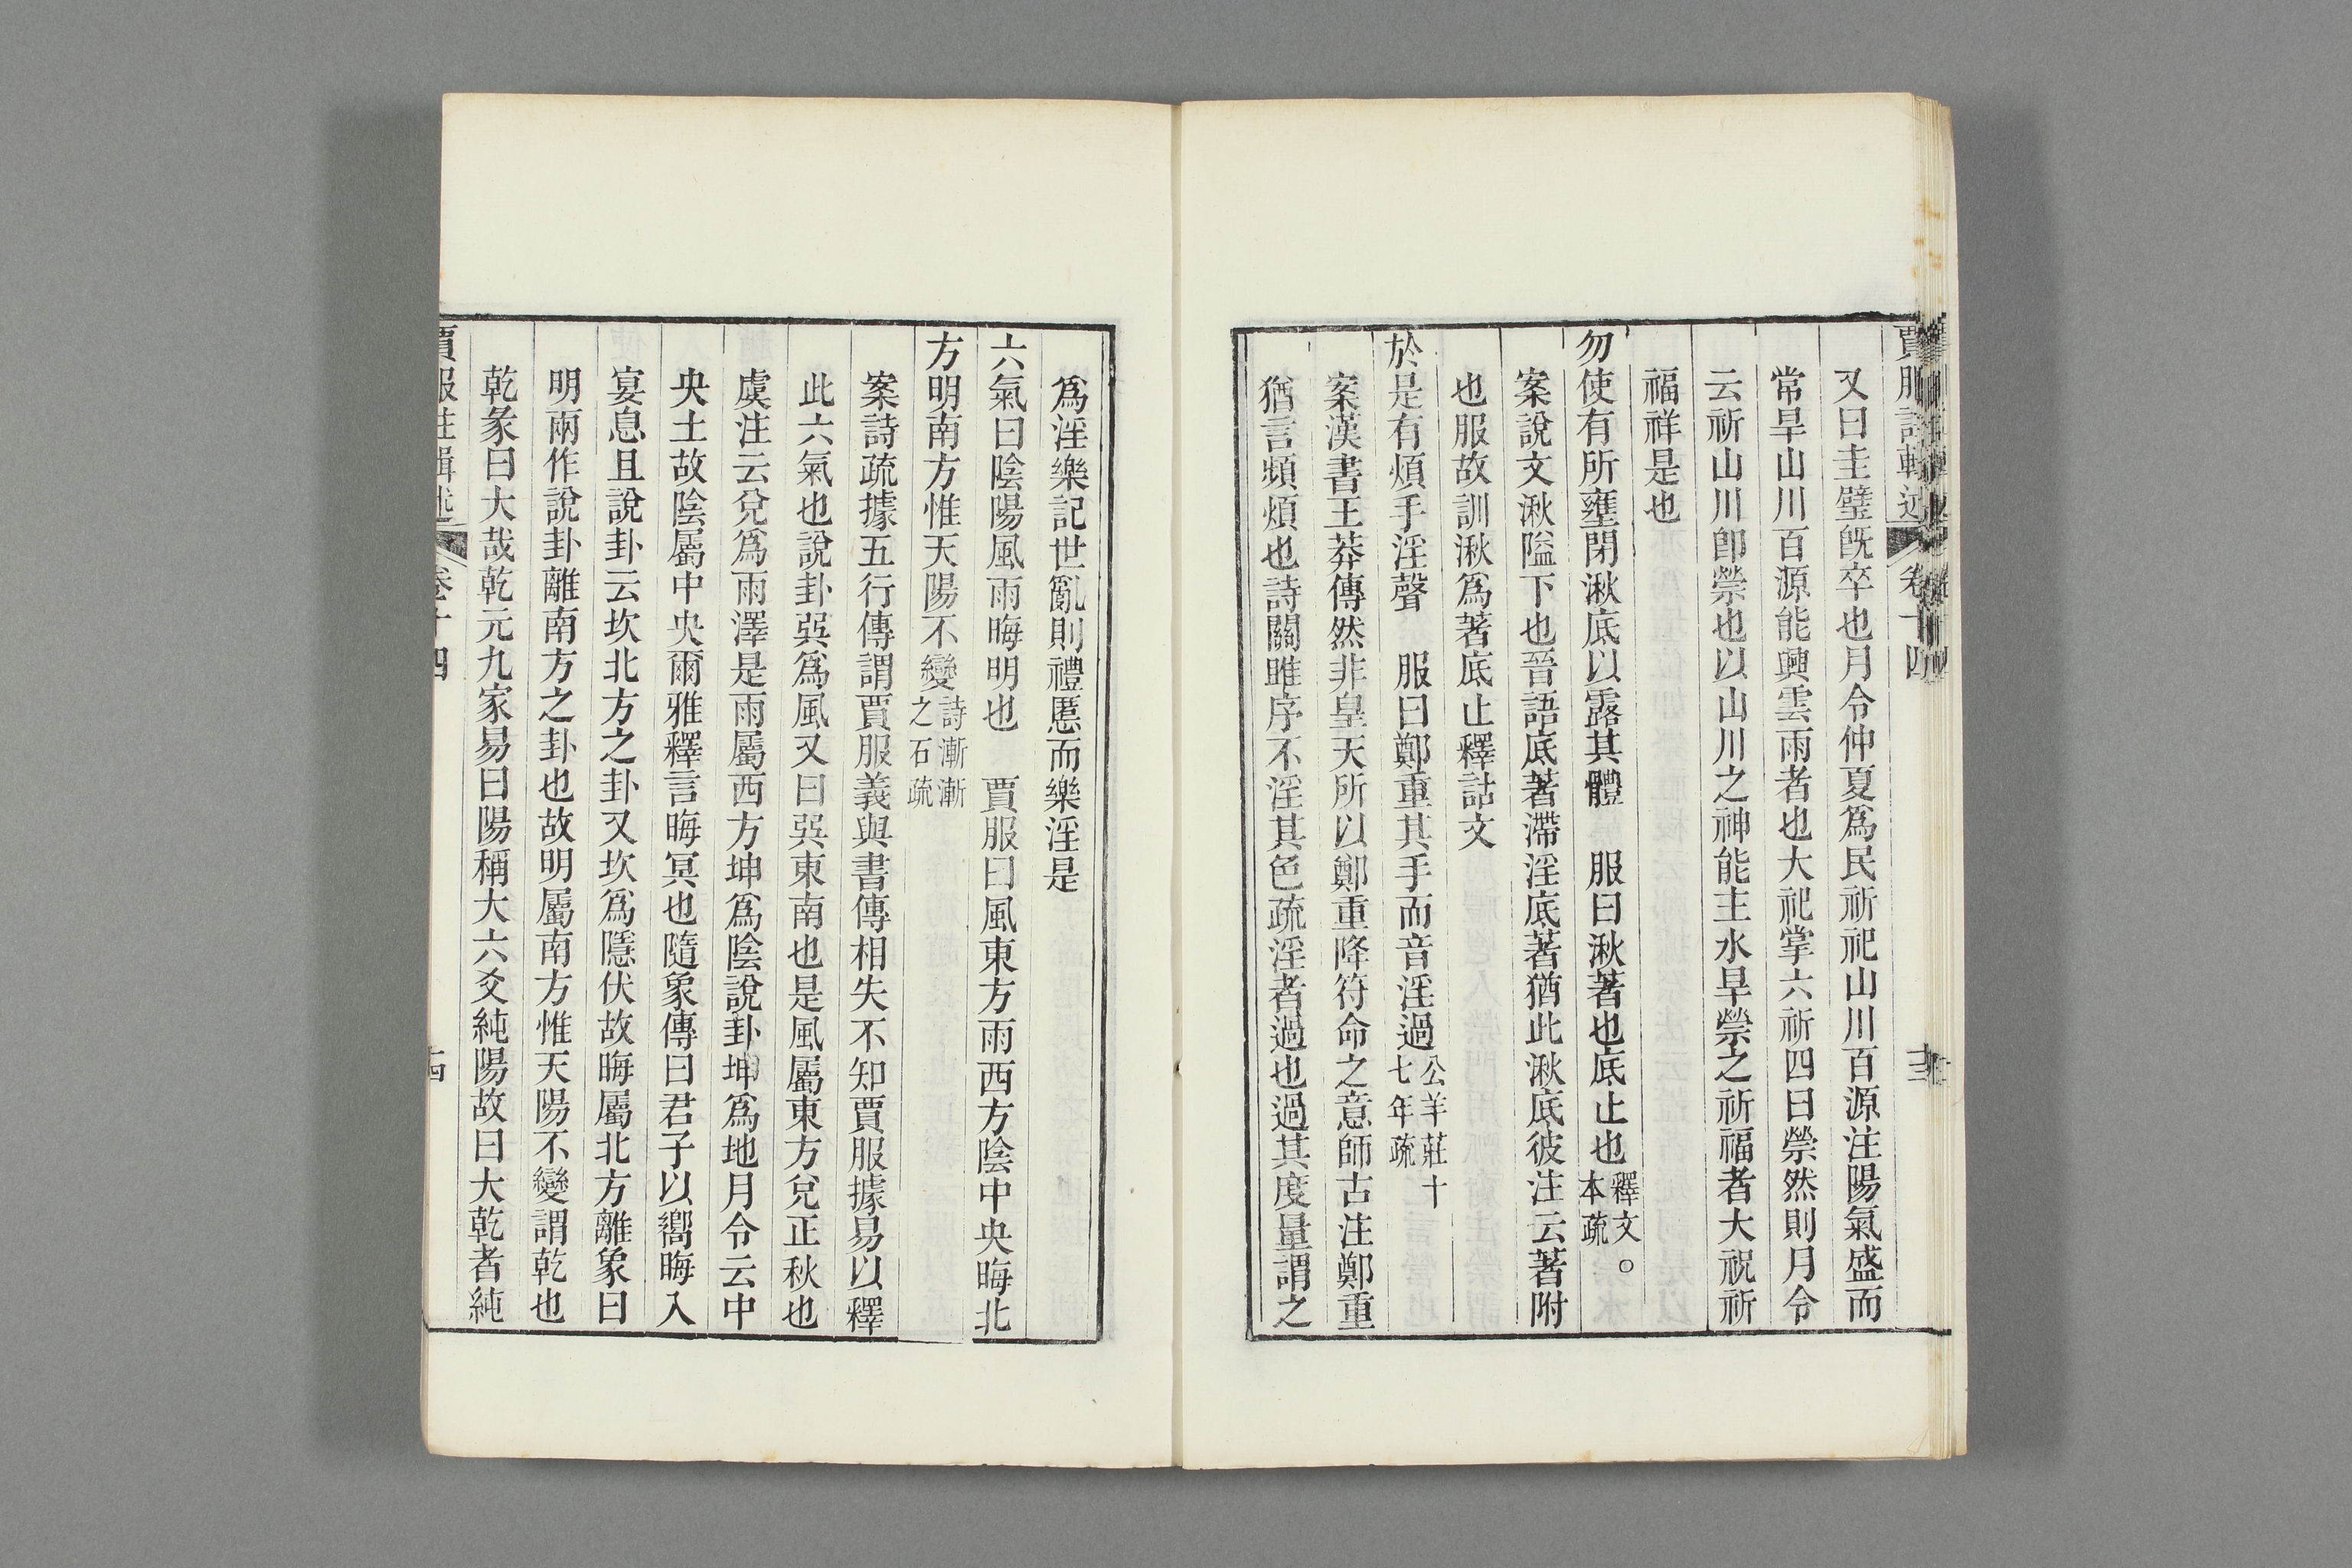 賈服註輯述 卷十四 十三
又曰圭璧旣卒也月令仲夏爲民祈祀山川百源注陽氣盛而
常旱山川百源能興雲雨者也大祀掌六祈四曰禜然則月令
云祈山川卽禜也以山川之神能主水旱禜之祈福者大祝祈
福祥是也
勿使有所壅閉湫底以露其體 服曰湫著也底止也釋文本疏○
案說文湫隘下也晉語底著滯淫底著猶此湫底彼注云著附
也服故訓湫爲著底止釋詁文
於是有煩手淫聲 服曰鄭重其手而音淫過公羊莊十七年疏
案漢書王莽傳然非皇天所以鄭重降符命之意師古注鄭重
猶言頻煩也詩關雎序不淫其色疏淫者過也過其度量謂之
爲淫樂記世亂則禮慝而樂淫是
六氣曰陰陽風雨晦明也 賈服曰風東方雨西方陰中央晦北
方明南方惟天陽不變詩漸漸之石疏
案詩疏據五行傳謂賈服義與書傳相失不知賈服據易以釋
此六氣也說卦巽爲風又曰巽東南也是風屬東方兌正秋也
虞注云兌爲雨澤是雨屬西方坤爲陰說卦坤爲地月令云中
央土故陰屬中央爾雅釋言晦冥也隨象傳曰君子以嚮晦入
宴息且說卦云坎北方之卦又坎爲隱伏故晦屬北方離象曰
明兩作說卦離南方之卦也故明屬南方惟天陽不變謂乾也
乾彖曰大哉乾元九家易曰陽稱大六爻純陽故曰大乾者純
賈服註輯述 卷十四 十四